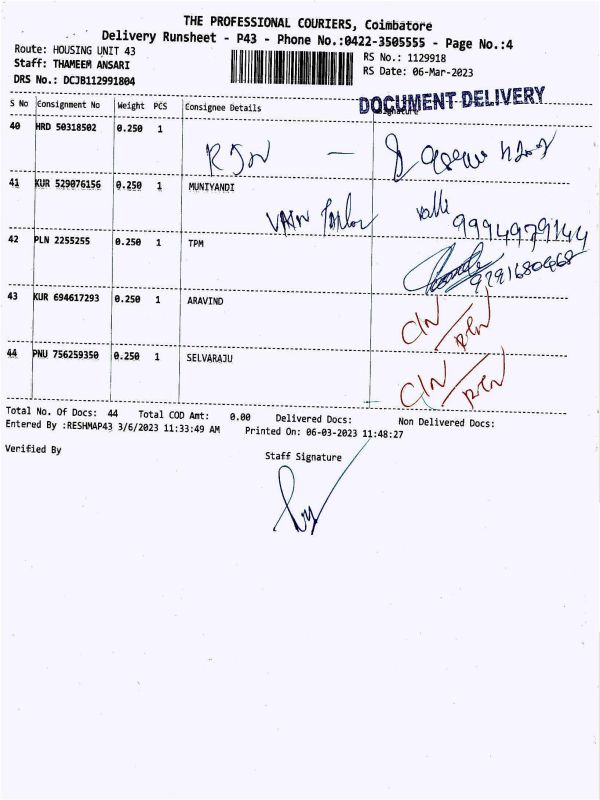 THE PROFESSIONAL COURIERS, Coimbatore
Delivery Runsheet - P43 - Phone No.:0422-3505555 - Page No.:4
Route: HOUSING UNIT 43
RS No.: 1129918
Staff: THAMEEM ANSARI
RS Date: 06-Mar-2023
DRS No.: DCJB112991804
DOCUMENT DELIVERY
S No Consignment No Weight PCS Consignee Details Signature
40 HRD 50318502 0.250 1
41 KUR 529076156 0.250 1 MUNIYANDI
9994979144
42 PLN 2255255 0.250 1 TPM
43 KUR 694617293 0.250 1 ARAVIND
C/N
44 PNU 756259350 0.250 1 SELVARAJU
C/N
Total No. Of Docs: 44 Total COD Amt: 0.00 Delivered Docs: Non Delivered Docs:
Entered By :RESHMAP43 3/6/2023 11:33:49 AM Printed On: 06-03-2023 11:48:27
Verified By
Staff Signature